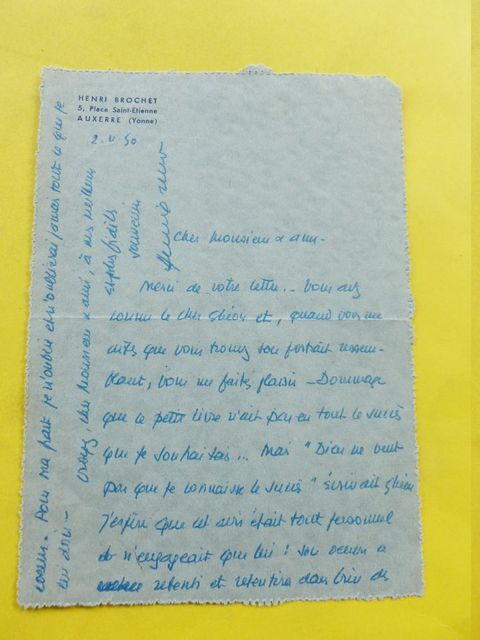 HENRI BROCHET
5, Place Saint-Etienne
AUXERRE (Yonne)
2. V. 50
Cher Monsieur & ami -
Merci de votre lettre. - Vous avez
connu le cher Ghéon et, quand vous me
dites que vous trouvez son portrait ressem-
blant, vous me faites plaisir - Dommage
que ce petit livre n'ait pas eu tout le succès
que je souhaitais... Mais "Dieu ne veut
pas que je connaisse le succès" écrivait Ghéon
J'espère que cet avis était tout personnel
et n'engageait que lui ! Son oeuvre a
retenti et retentira dans bien des
coeurs. Pour ma part je n'oublie et n'oublierai jamais tout ce que je
lui dois -
Croyez, cher Monsieur & ami, à mes meilleurs
et plus fidèles
souvenirs